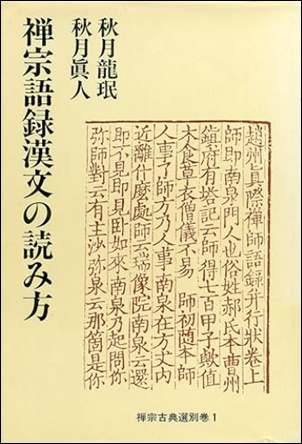 秋月龍珉
秋月眞人
禅宗語録漢文の読み方
趙州真際禪師語録并行狀卷上
師即南泉門人也俗姓郝氏本曹州
鎮府有塔記云師得七百甲子歟值
大食草衣僧儀不易 師初隨本師
人事了師方乃人事南泉在方丈内
近離什麼處師云瑞像院南泉云還
即不見即見卧如來南泉乃起問你
弥師對云有主沙弥泉云那箇是你
禅宗古典選別巻1